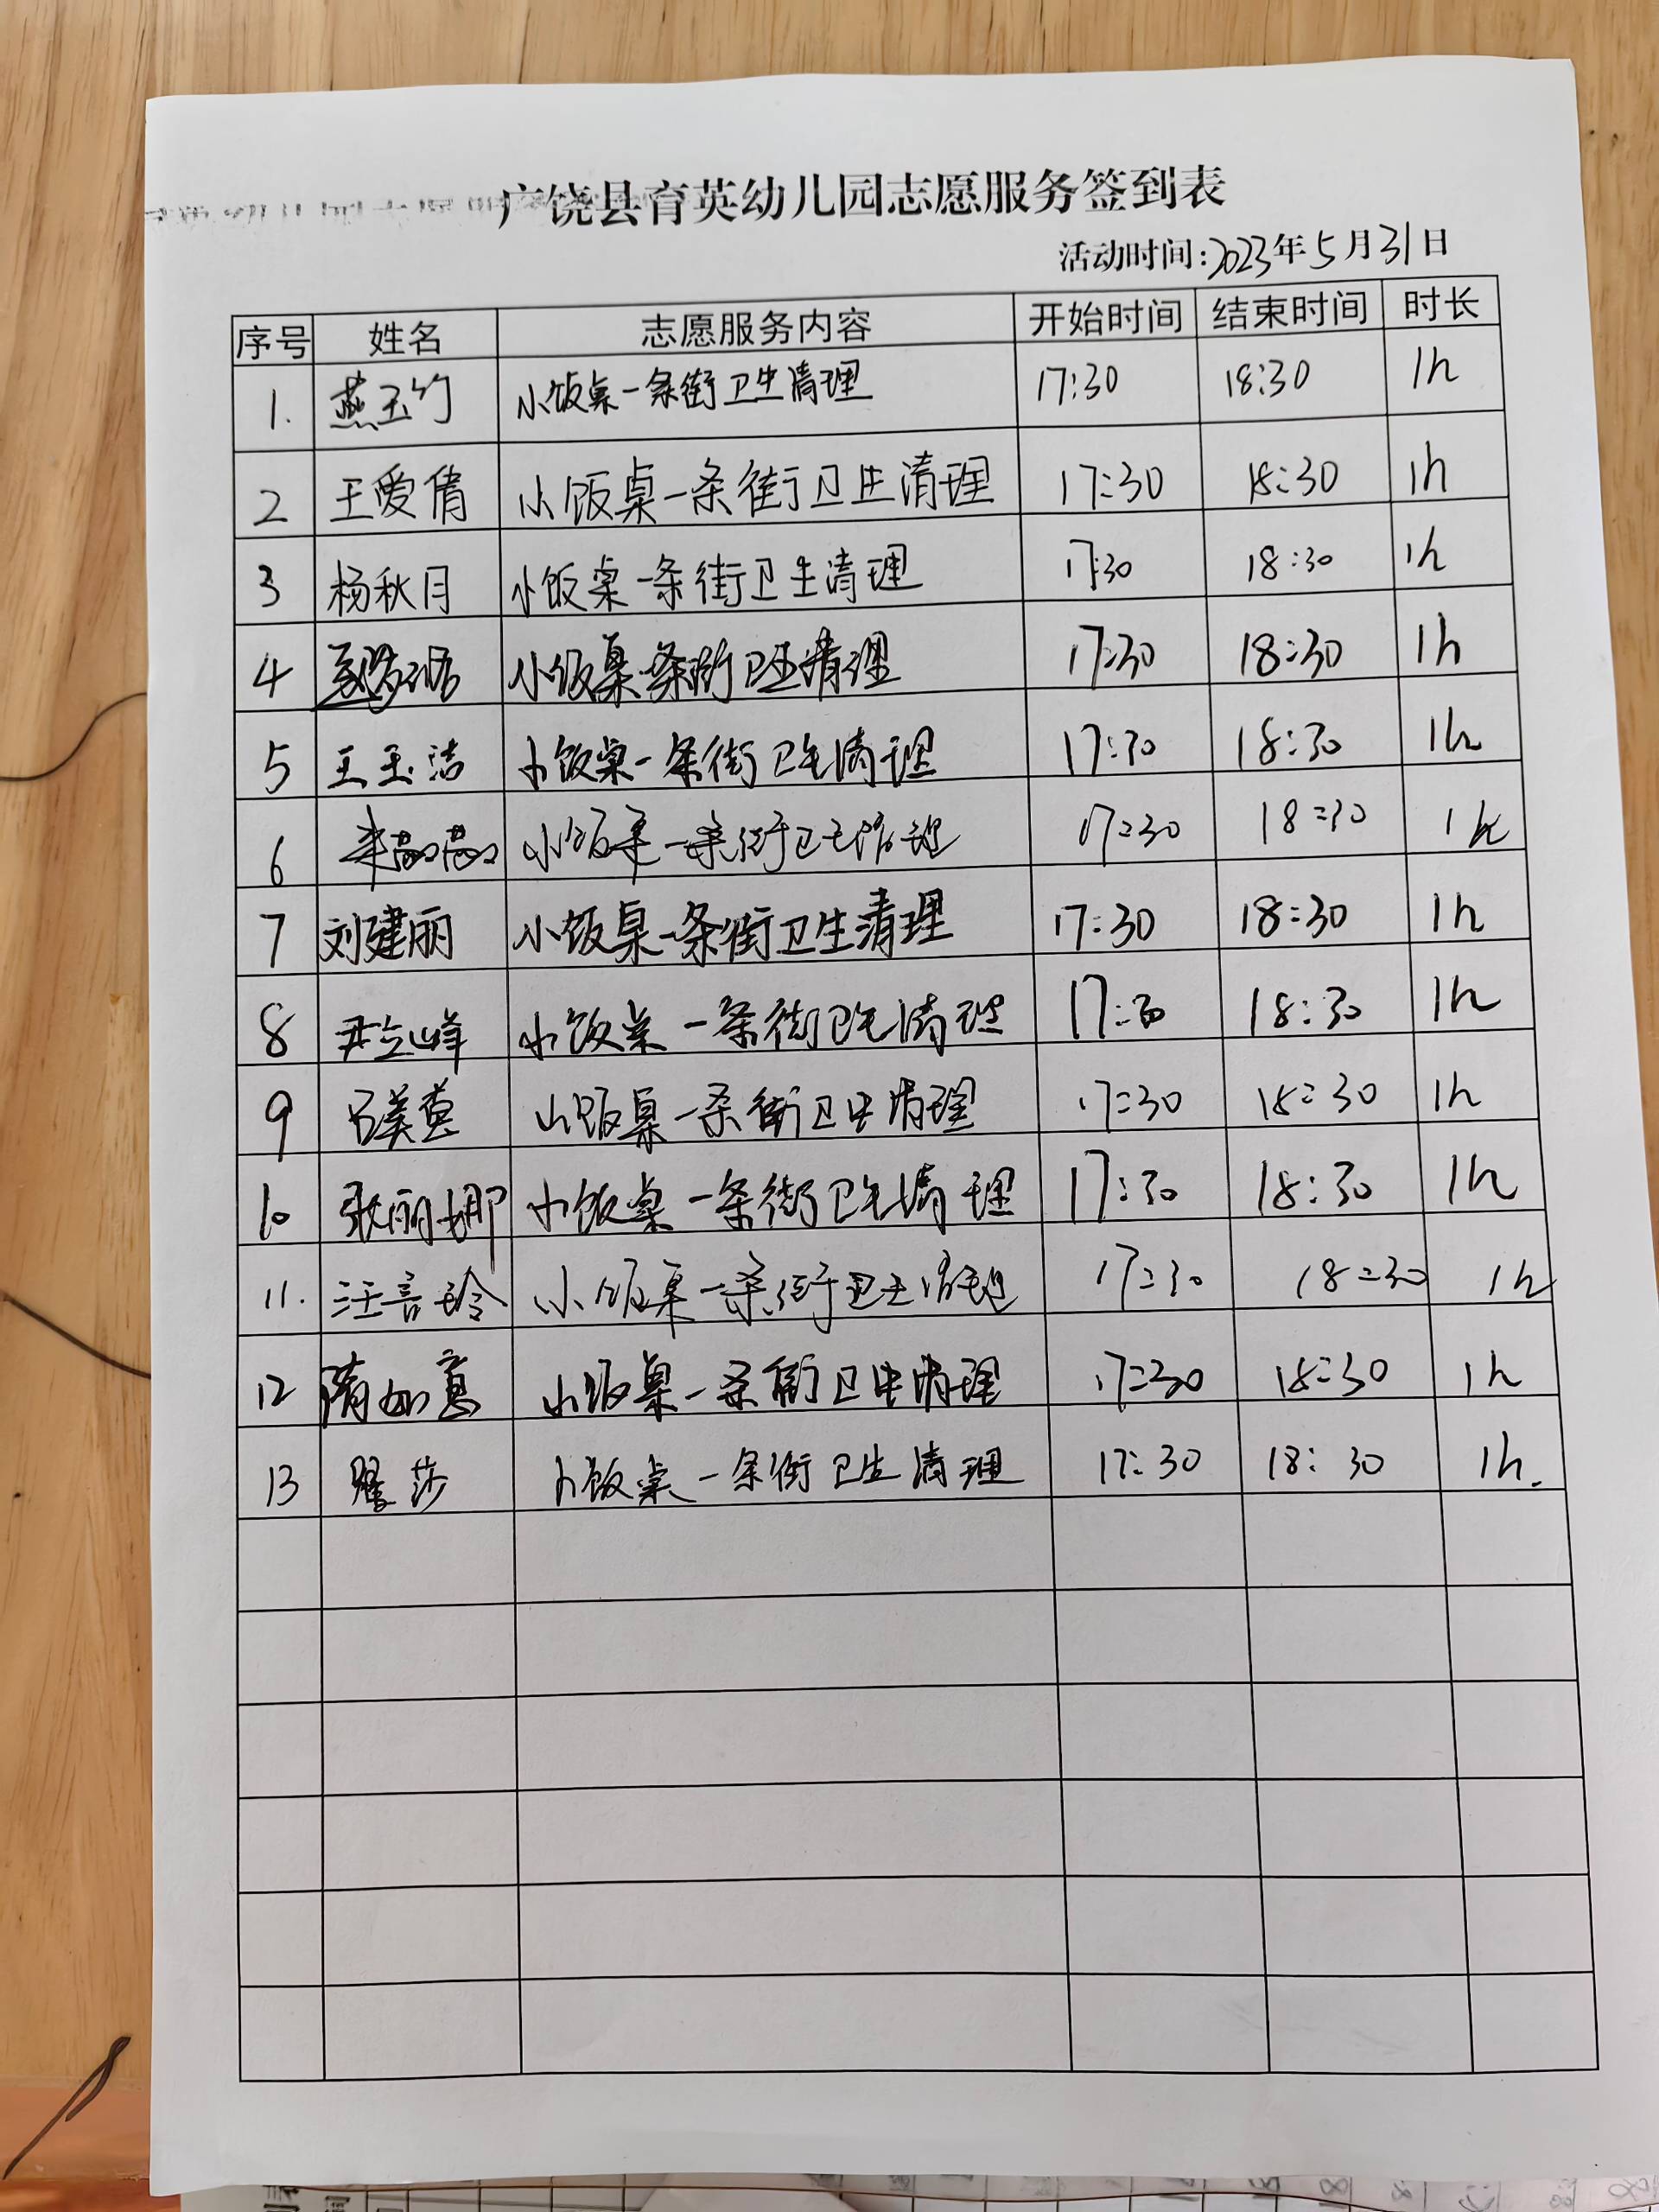 广饶县育英幼儿园志愿服务签到表
活动时间:2023年5月31日
序号 姓名 志愿服务内容 开始时间 结束时间 时长
1. 燕玉竹 小饭桌一条街卫生清理 17:30 18:30 1h
2 王爱倩 小饭桌一条街卫生清理 17:30 18:30 1h
3 杨秋月 小饭桌一条街卫生清理 17:30 18:30 1h
4 小饭桌一条街卫生清理 17:30 18:30 1h
5 王玉洁 小饭桌一条街卫生清理 17:30 18:30 1h
6 小饭桌一条街卫生清理 17:30 18:30 1h
7 刘建丽 小饭桌一条街卫生清理 17:30 18:30 1h
8 尹立峰 小饭桌一条街卫生清理 17:30 18:30 1h
9 小饭桌一条街卫生清理 17:30 18:30 1h
10 张丽娜 小饭桌一条街卫生清理 17:30 18:30 1h
11. 汪言玲 小饭桌一条街卫生清理 17:30 18:30 1h
12 隋如意 小饭桌一条街卫生清理 17:30 18:30 1h
13 莎 小饭桌一条街卫生清理 17:30 18:30 1h.